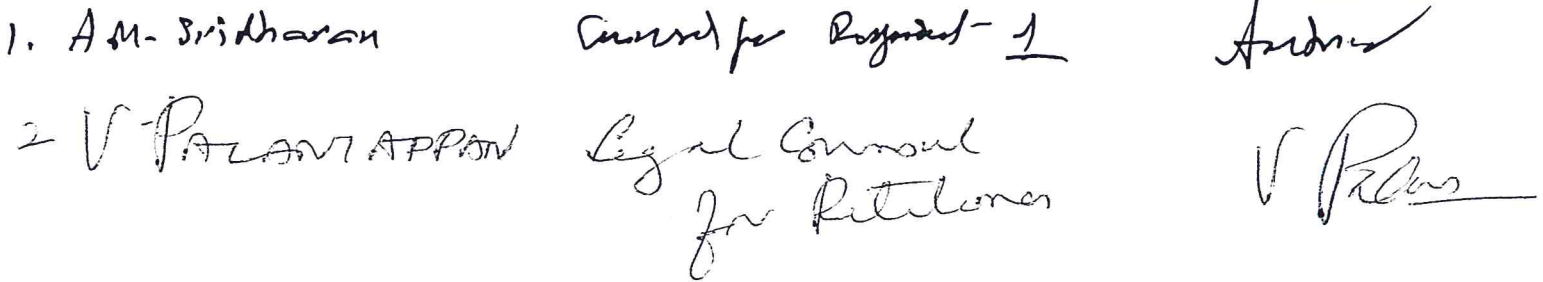 1. A.M. Sridharan Counsel for Respondent - 1
2 V. PALANIAPPAN Legal Counsul
for Petitioner